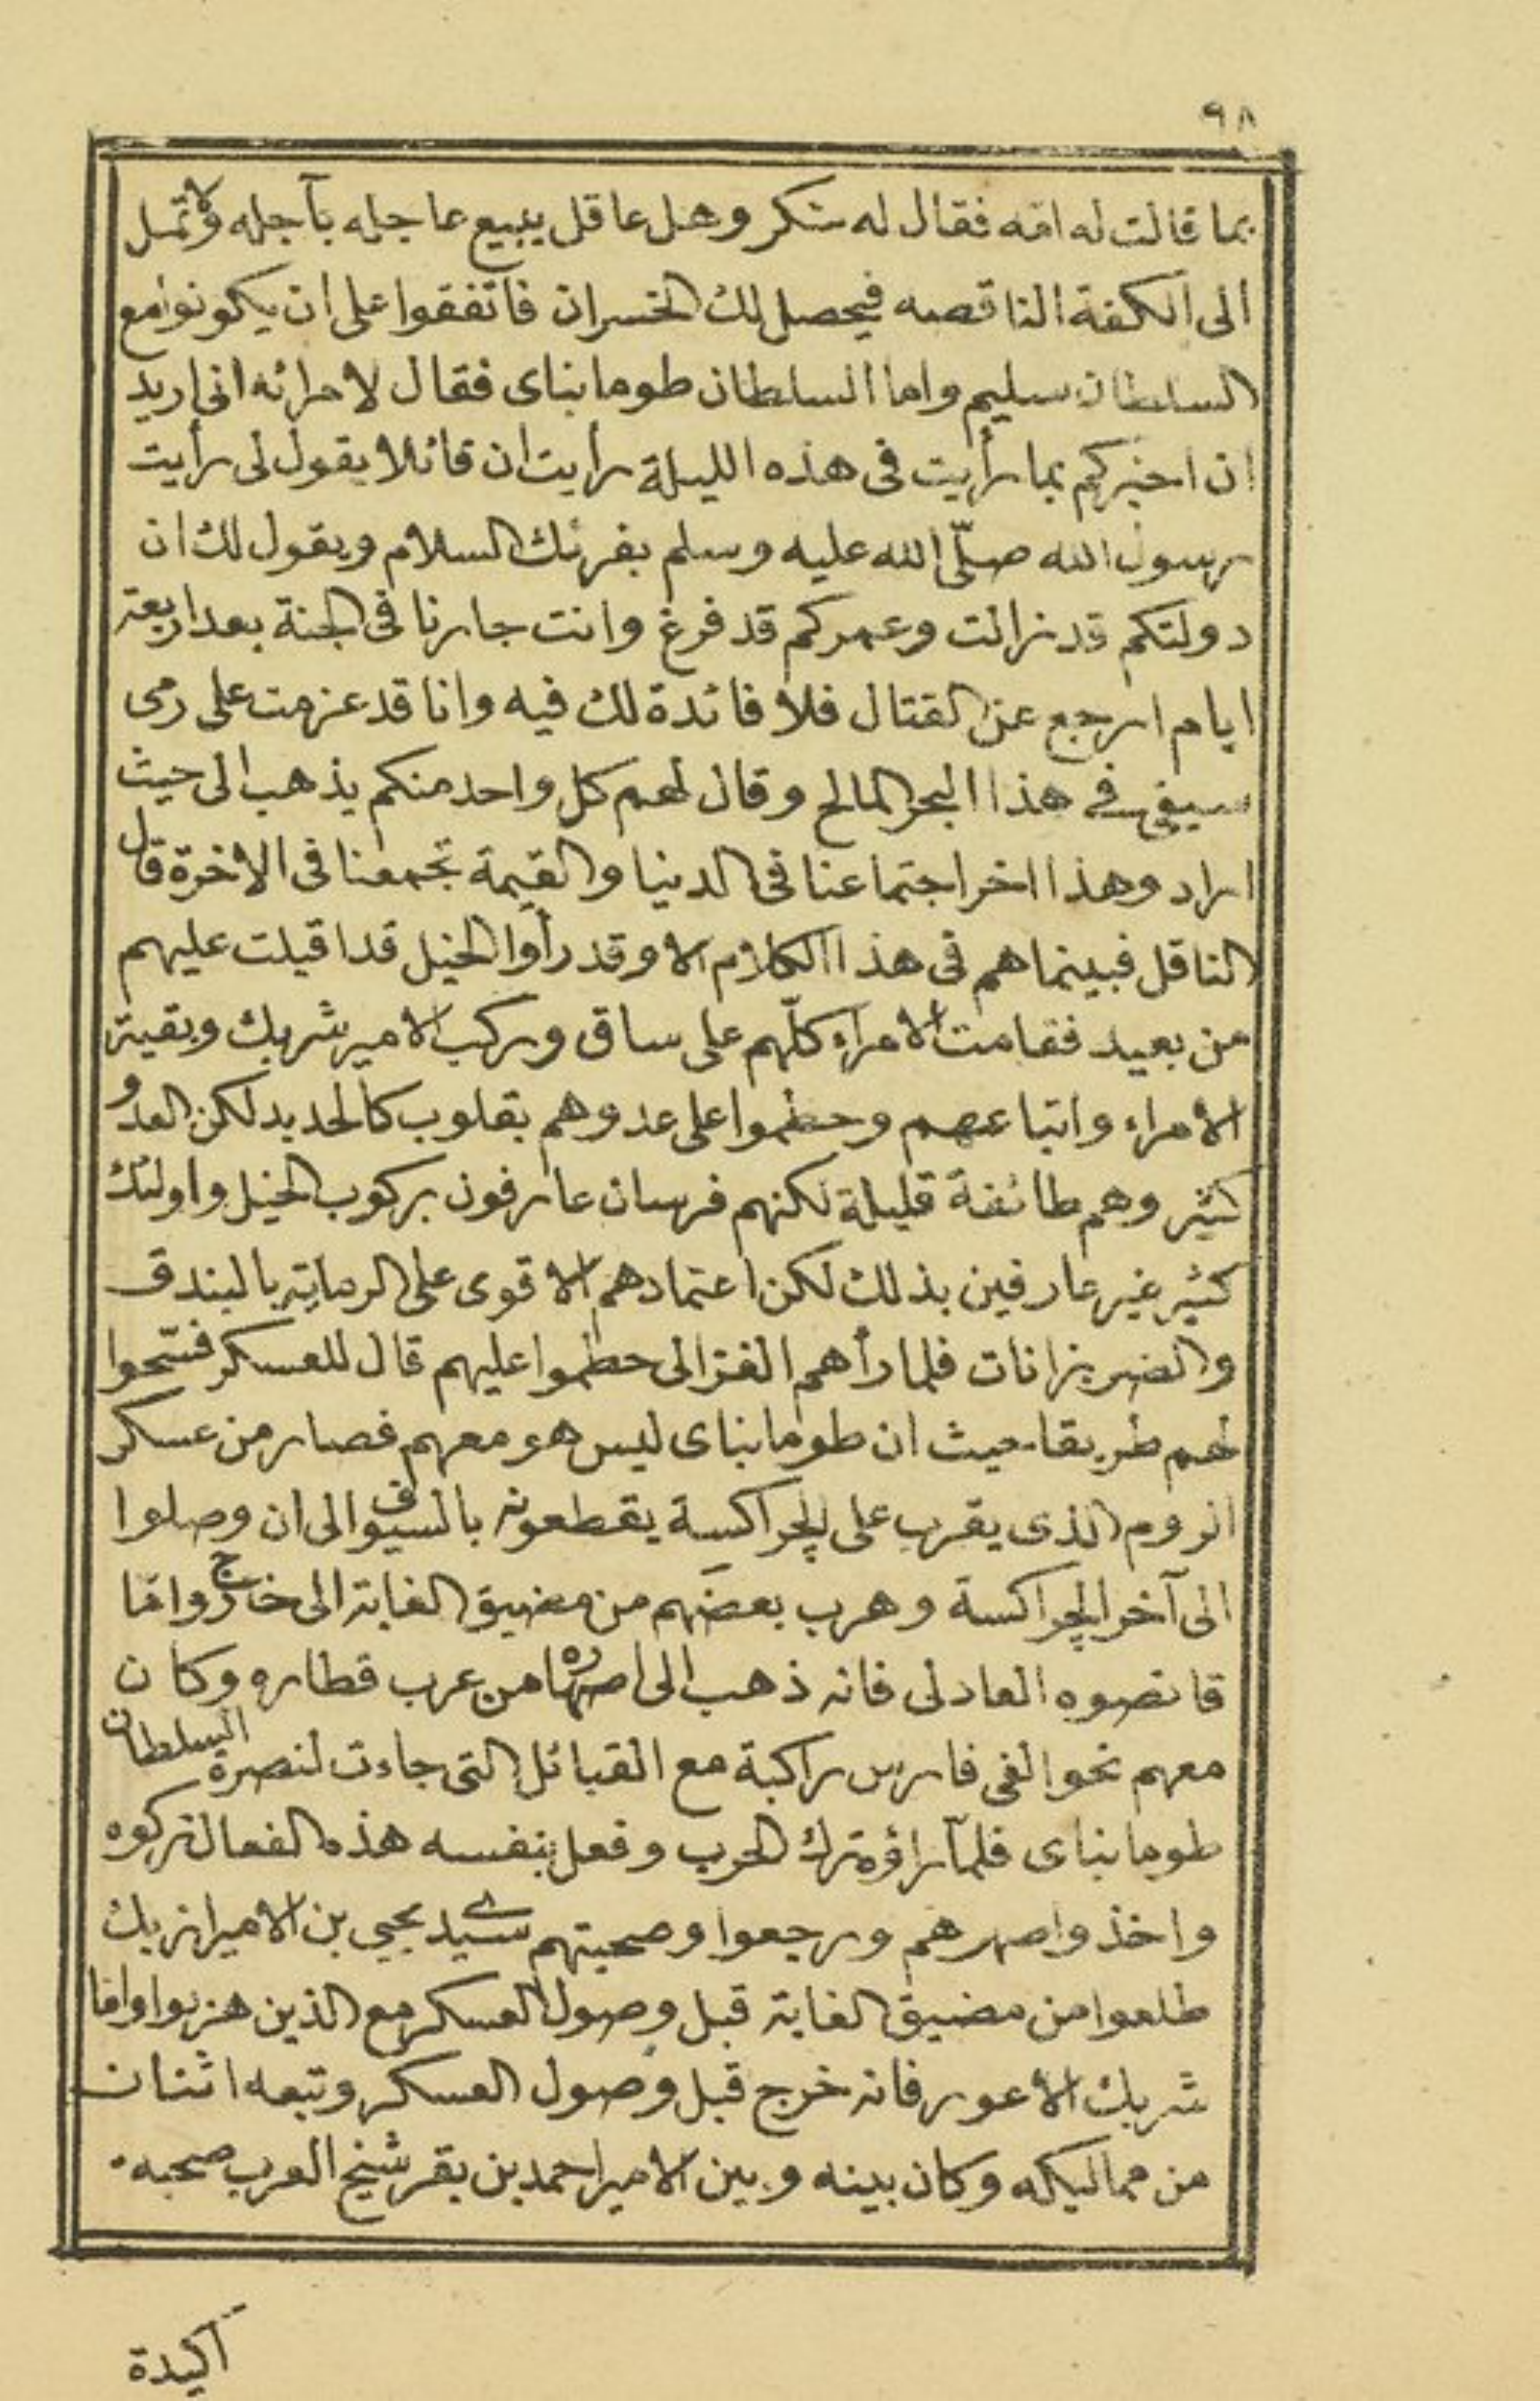 ٩٨
بما قالت له امّه فقال له شكر وهل عاقل يبيع عاجله بآجله ولا تمل
الى الكفة الناقصه فيحصل لك الخسران فاتفقوا على ان يكونوا مع
السلطان سليم واما السلطان طومانباى فقال لامرائه انى اريد
ان اخبركم بما رأيت فى هذه الليلة رأيت ان قائلا يقول لى رأيت
رسول الله صلّى الله عليه وسلم يقرئك السلام ويقول لك ان
دولتكم قد زالت وعمركم قد فرغ وانت جارنا فى الجنة بعد اربعة
ايام ارجع عن القتال فلا فائدة لك فيه وانا قد عزمت على رمى
سيفى فى هذا البحر المالح وقال لهم كل واحد منكم يذهب الى حيث
اراد وهذا اخر اجتماعنا فى الدنيا والقيمة تجمعنا فى الاخرة قال
الناقل فبينما هم فى هذا الكلام الا وقد رأوا الخيل قد اقبلت عليهم
من بعيد فقامت الامراء كلّهم على ساق وركب الامير شربك وبقية
الامراء واتباعهم وحطموا على عدوهم بقلوب كالحديد لكن العدو
كثير وهم طائفة قليلة لكنهم فرسان عارفون بركوب الخيل واولئك
كثير غير عارفين بذلك لكن اعتمادهم الاقوى على الرماية بالبندق
والضربزانات فلما رأهم الغزالى حطموا عليهم قال للعسكر فتحوا
لهم طريقا حيث ان طومانباى ليس هو معهم فصار من عسكر
الروم الذى يقرب على الچراكسة يقطعونه بالسيوف الى ان وصلوا
الى آخر الچراكسة وهرب بعضهم من مضيق الغابة الى خارج وامّا
قانصوه العادلى فانه ذهب الى اصهاره من عرب قطاره وكان
معهم نحو الفى فارس راكبة مع القبائل التى جاءت لنصرة السلطان
طومانباى فلمّا راؤه ترك الحرب وفعل بنفسه هذه الفعال تركوه
واخذوا صهرهم ورجعوا وصحبتهم سيدى يحيى بن الامير ازبك
طلعوا من مضيق الغابة قبل وصول العسكر مع الذين هزبوا وامّا
شربك الاعور فانه خرج قبل وصول العسكر وتبعه اثنان
من مماليكه وكان بينه وبين الامير احمد بن بقر شيخ العرب صحبه
اكيدة